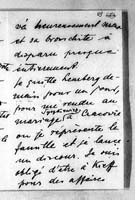 va heureusement mieux
et sa bronchite a
disparu presque
entièrement.
Je quitte Lemberg de-
main pour un jour,
pour me rendre au
mariage à Cracovie
où je représente la
famille et je lance
un discours. Je suis
obligé d'être à Kieff
pour des affaires